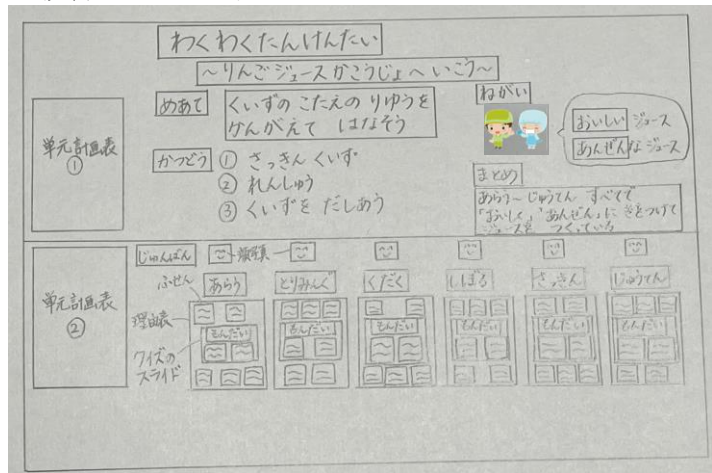 わくわくたんけんたい
～りんごジュースかこうじょへ いこう～
単元計画表
①
めあて
くいずの こたえの りゆうを
かんがえて はなそう
かつどう
① さっきん くいず
② れんしゅう
③ くいずを だしあう
ねがい
おいしい ジュース
あんぜんな ジュース
まとめ
あらう～じゅうてん すべてで
「おいしく」「あんぜん」に きをつけて
ジュースを つくっている
単元計画表
②
じゅんばん
ふせん
あらう
とりみんぐ
くだく
しぼる
さっきん
じゅうてん
理由表
もんだい
もんだい
もんだい
もんだい
もんだい
もんだい
クイズの
スライド